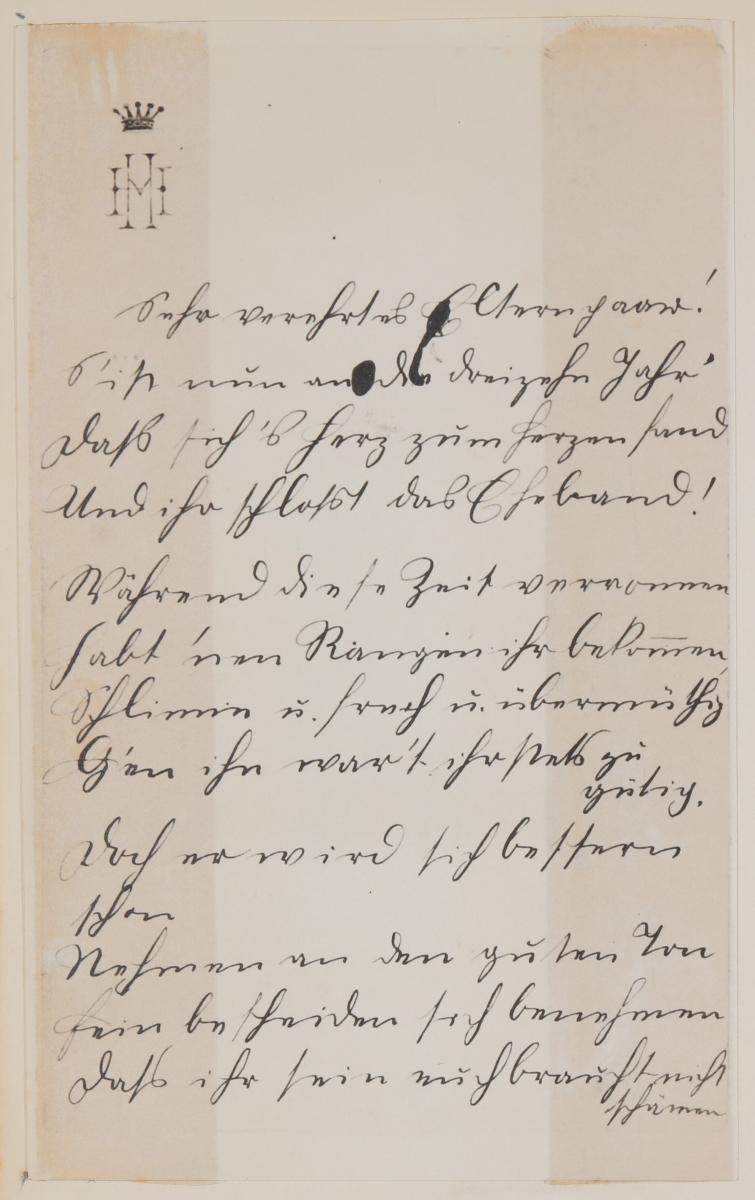 HM
Sehr verehrtes Elternpaar!
S'ist nun an die dreizehn Jahr'
Dass sich's Herz zum Herzen fand
Und ihr schlosst das Eheband!
Während diese Zeit verronnen
Habt 'nen Rangen ihr bekommen,
Schlimm u. frech u. übermüthig
G'en ihn war't ihr stets zu
gütig.
Doch er wird sich bessern
schon
Nehmen an den guten Ton
Fein bescheiden sich benehmen
Dass ihr sein euch braucht nicht
schämen